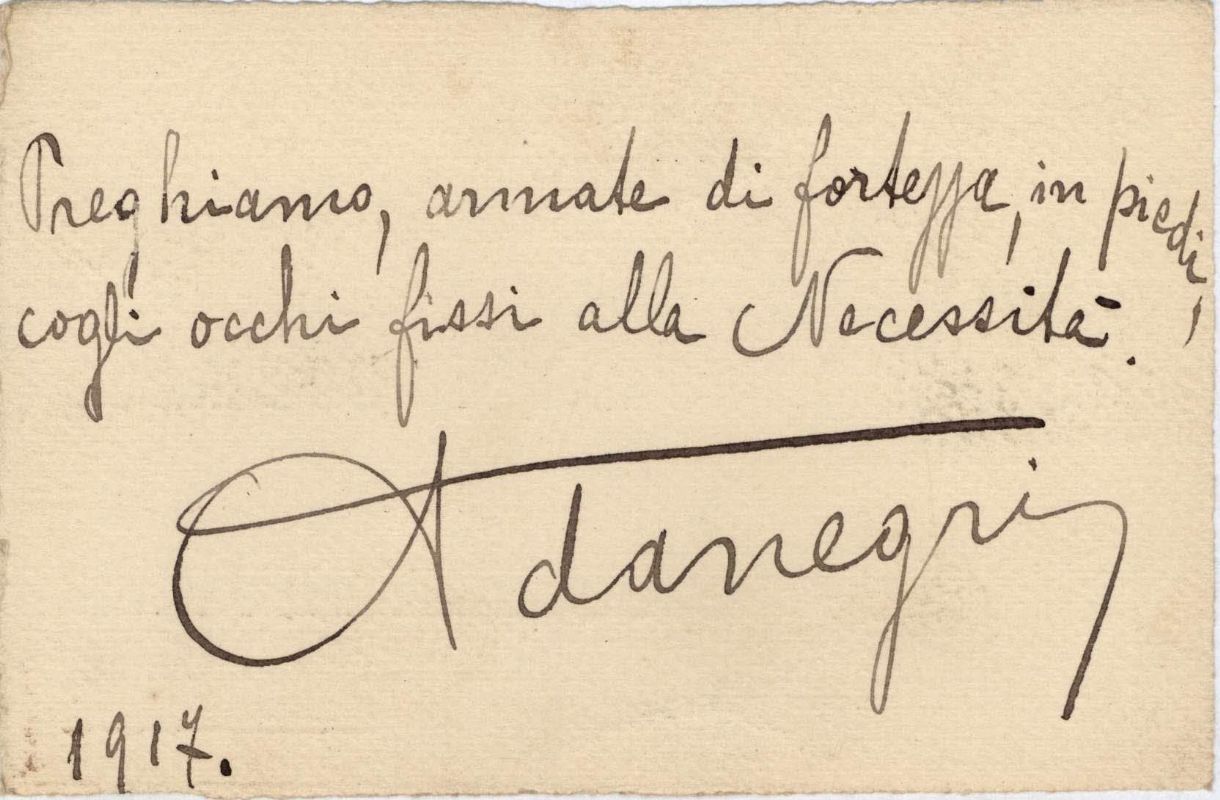 Preghiamo, armate di fortezza, in piedi,
cogli occhi fissi alla Necessità.
Adanegri
1917.